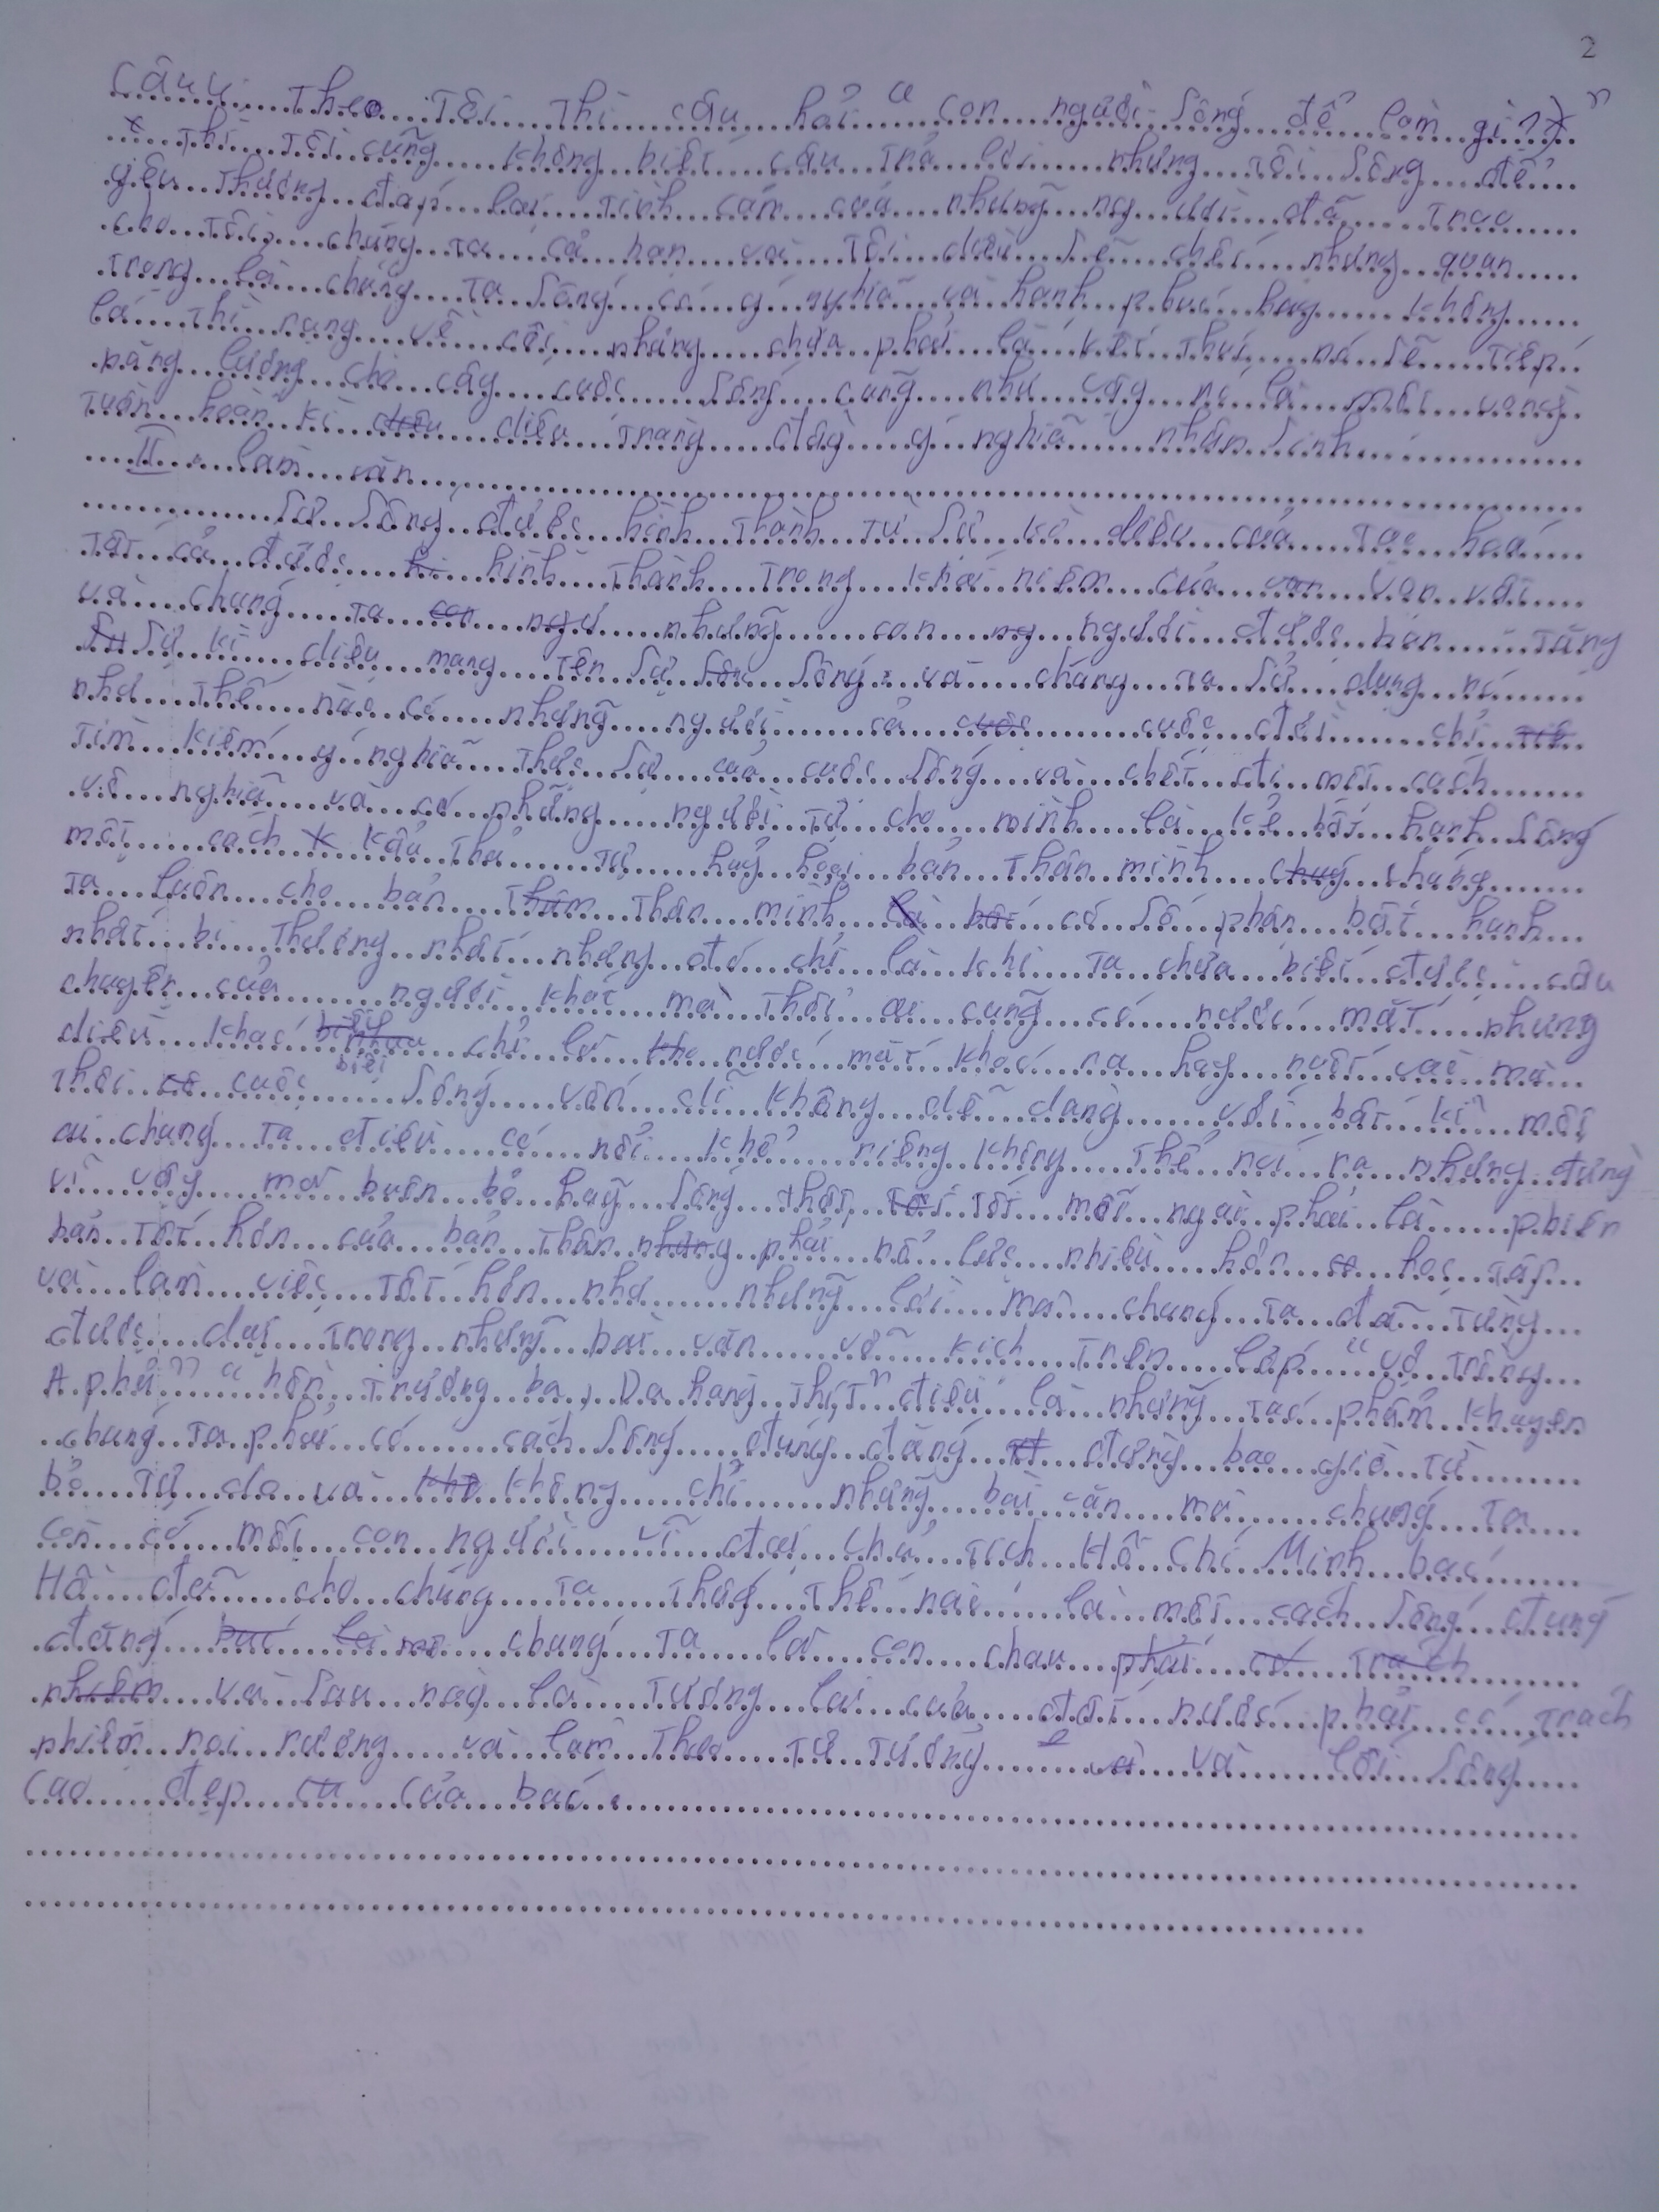 2
Câu 4: Theo Tôi Thì câu hỏi " con người sống để làm gì?"
Thì Tôi cũng không biết câu Trả lời nhưng tôi sống để
yêu Thương đáp lại Tình cảm của những người đã Trao
cho Tôi, chúng Ta cả bạn và Tôi điều sẽ chết nhưng quan
Trọng là chúng Ta sống có ý nghĩa và hạnh phúc hay không
lá Thì rụng về cội nhưng chưa phải là kết Thúc nó sẽ Tiếp
năng lượng cho cây cuộc sống cũng như vậy nó là một vòng
Tuần hoàn kì diệu Tràng đầy ý nghĩa nhân sinh.
II. làm văn
Sự sống được hình Thành Từ sự kì diệu của Tạo hoá
Tất cả được hình Thành Trong khái niệm của vạn vật
và chúng Ta những con người được ban Tặng
sự kì diệu mang Tên sự sống và chúng Ta sử dụng nó
như Thế nào có những người cả cuộc đời chỉ
Tìm kiếm ý nghĩa Thực sự của cuộc sống và chết đi một cách
vô nghĩa và có những người Tự cho mình là kẻ bất hạnh sống
một cách cẩu Thả Tự huỷ hoại bản Thân mình chúng
Ta luôn cho bản Thân mình có số phận bất hạnh
nhất bi Thương nhất nhưng đó chỉ là khi Ta chưa biết được câu
chuyện của người khác mà Thôi ai cũng có nước mắt nhưng
điều khác biệt chỉ là nước mắt khóc ra hay nuốt vào mà
Thôi cuộc sống vốn dĩ không dễ dàng với bất kì một
ai chúng Ta điều có nỗi khổ riêng không Thể nói ra nhưng đừng
vì vậy mà buôn bỏ hãy sống thật Tốt mỗi ngài phải là phiên
bản Tốt hơn của bản Thân phải nổ lực nhiều hơn học Tập
và làm việc Tốt hơn như những lời mà chúng Ta đã Từng
được dạy Trong những bài văn vỡ kịch Trên lớp "vợ Trồng
A phủ" "hồn Trương ba, Da hàng Thịt" điều là những Tác phẩm khuyên
chúng Ta phải có cách sống đúng đắng đừng bao giờ Từ
bỏ Tự do và không chỉ những bài văn mà chúng Ta
còn có một con người vĩ đại chủ Tịch Hồ Chí Minh bác
Hồ đã cho chúng Ta Thấy Thế nào là một cách sống đúng
đắng chúng Ta là con cháu
và sau này là Tương lai của đất nước phải có Trách
nhiệm noi rương và làm Theo Tư Tưởng và lối sống
cao đẹp của bác.